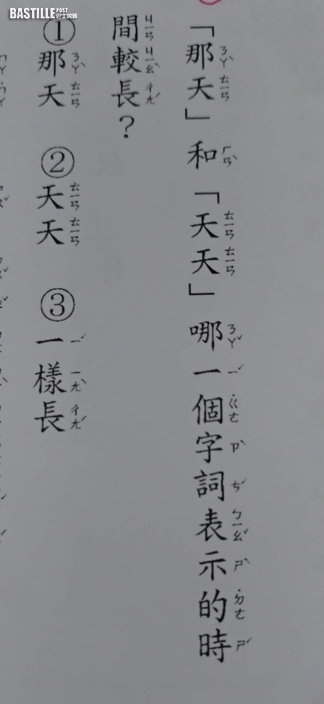 BASTILLE POST
巴士的報
「那天」和「天天」哪一個字詞表示的時
間較長？
①那天 ②天天 ③一樣長